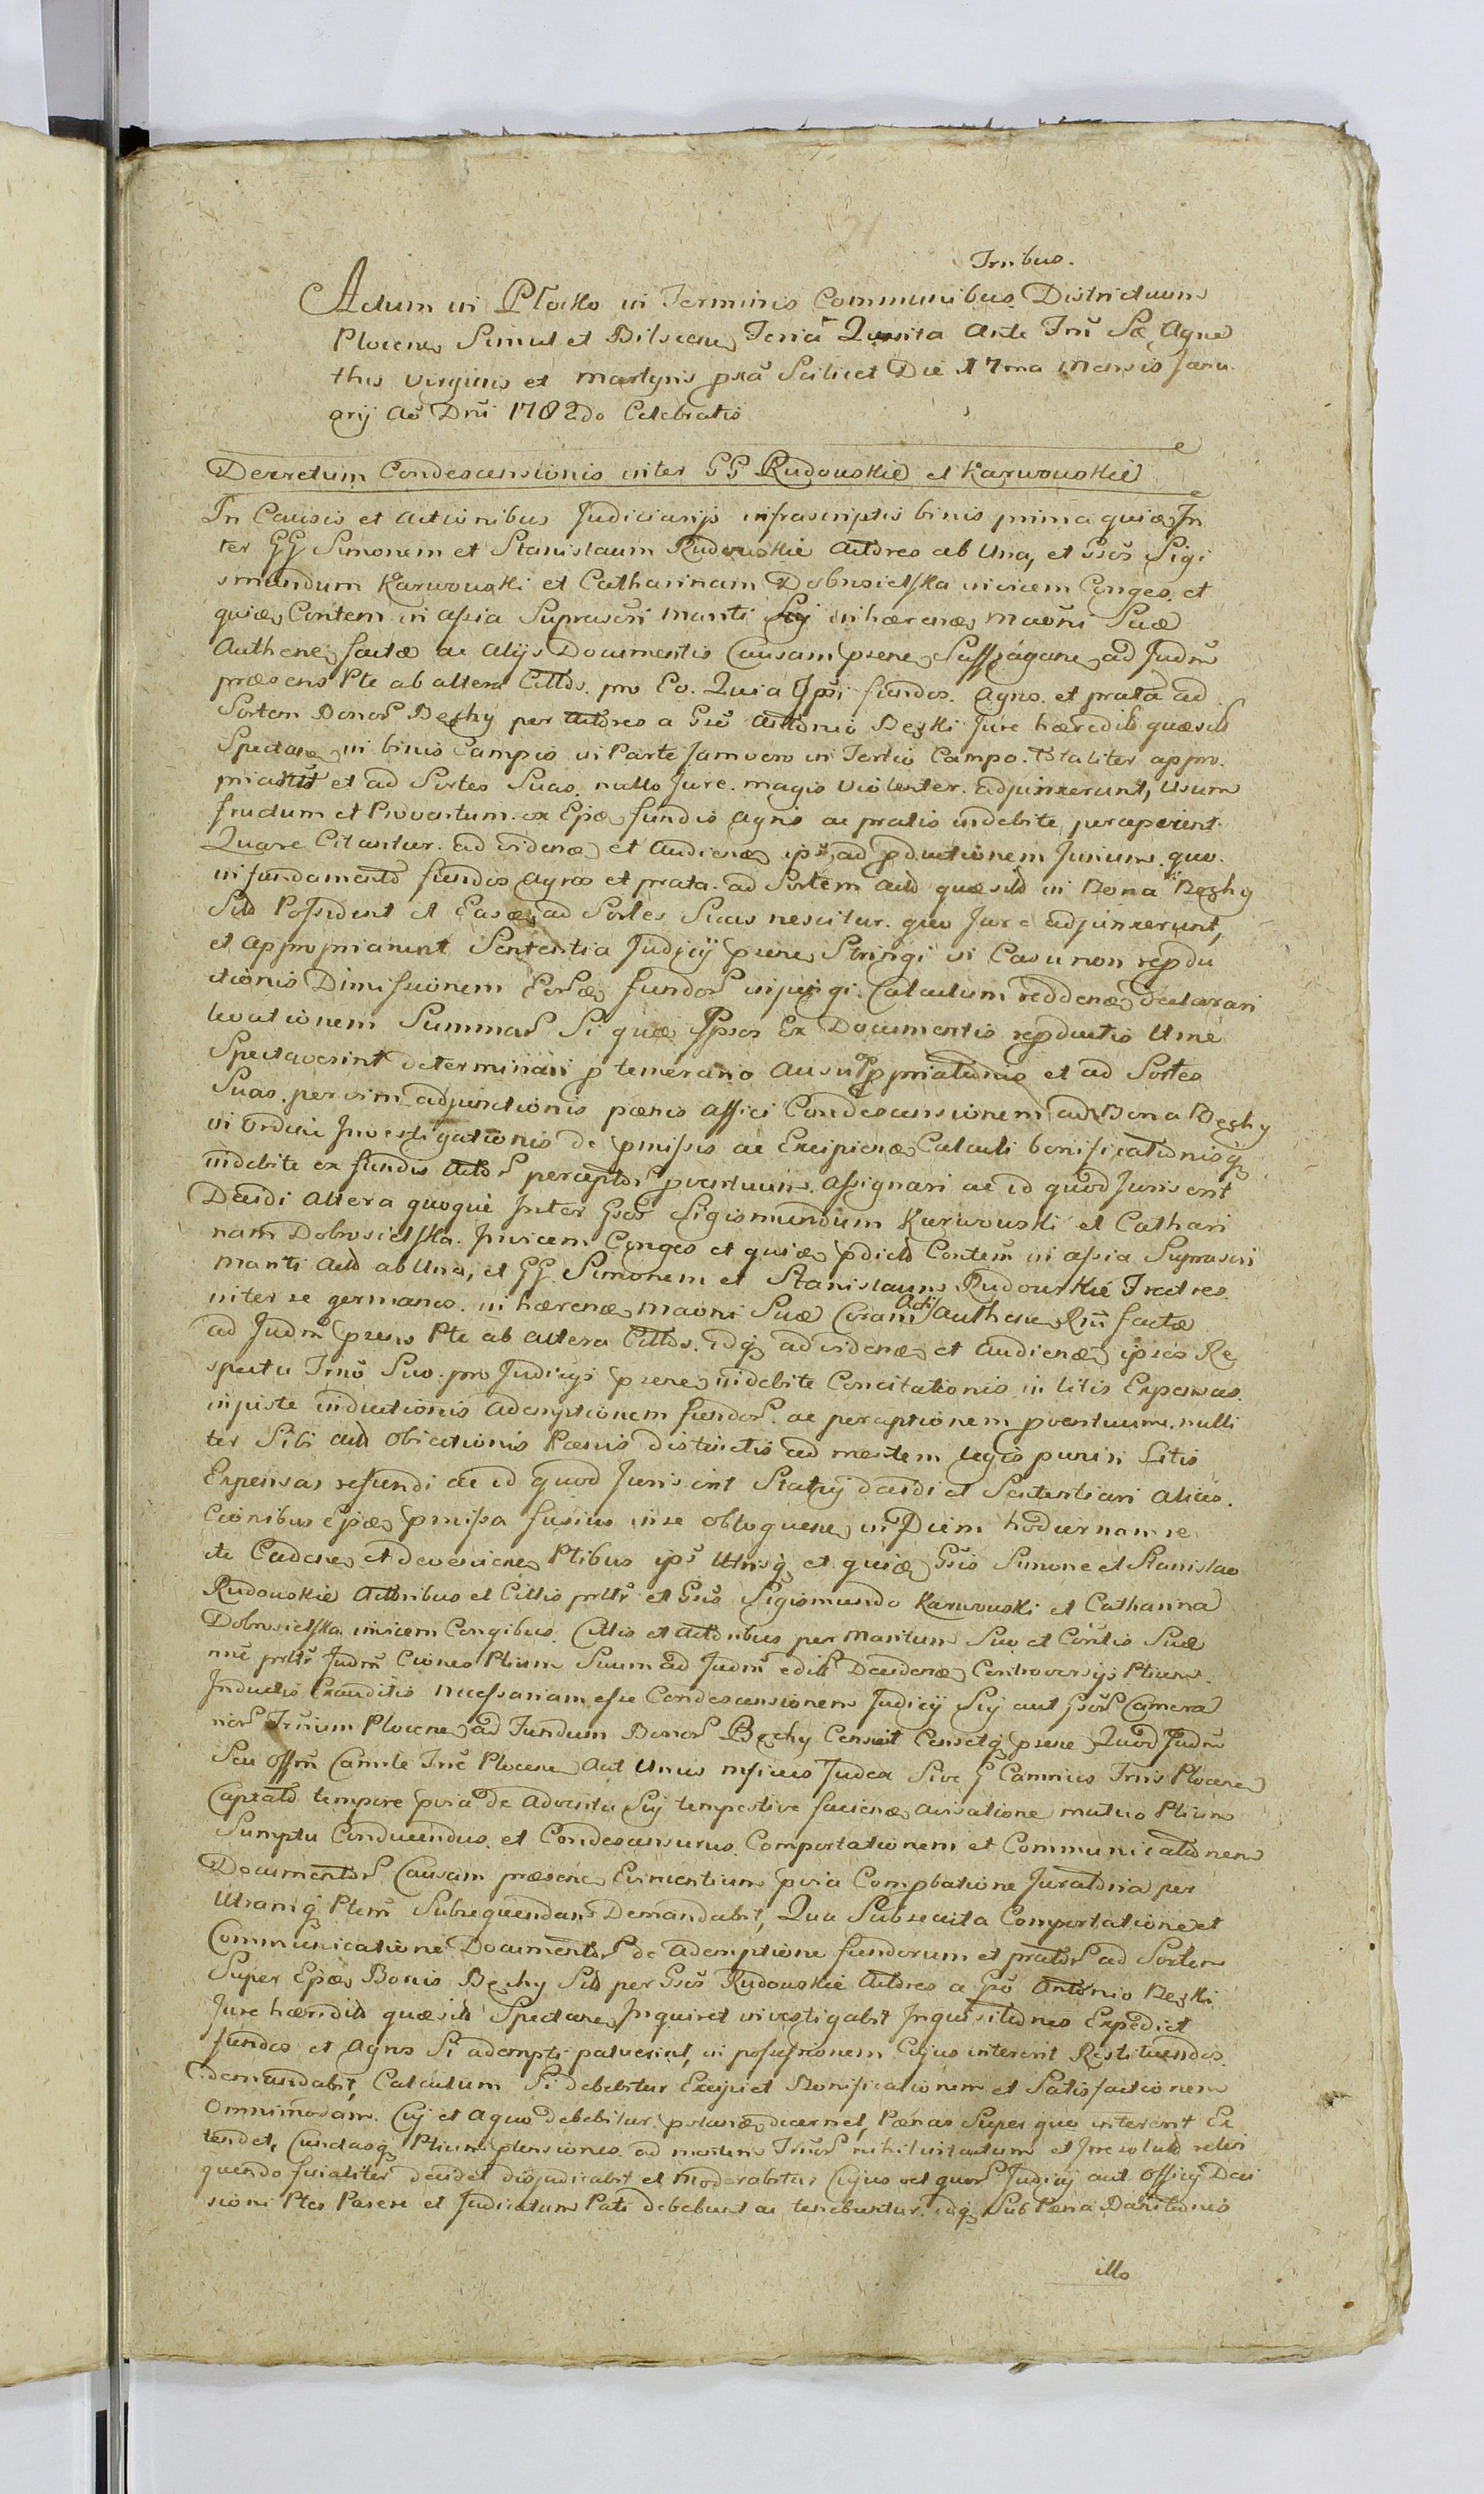 Trnibus.
Actum in Płocko in Terminis Communibus Districtuum
Plocen Simul et Bilscen Feria Quinta Ante Frm Sæ Agne
this Virginis et Martyris pxa Scilicet Die 17ma Mensis Janu
arij Ao Dni 1782do Celebratis
Decretum Condescensionis inter GG Rudowskie et Karwowskie
In Causis et Actionibus Judiciarijs infrascriptis binis prima quidem In
ter GG Simonem et Stanislaum Rudowskie Actores ab Una, et Gsos Sigi
smundum Karwowski et Catharinam Dobrosielska invicem Conges. et
quidem Contem in assia Suprascri Mariti Sij inhærendo Maoni Suæ
Authen factæ ac Alijs Documentis Causam psen Suffragan ad Judm
præsens Pte ab altera Cittos. pro Eo. Quia Ipsi fundos. Agros. et prata ad
Sortem Bonor Bęzky per Actores a Gso Antonio Bęski Jure hæredit quæsit
Spectan in binis Campis in Parte Jamvero in Tertio Campo. Totaliter appro.
priarunt et ad Sortes Suas. nullo Jure. magis Violenter. adjunxerunt, Usum
fructum et Proventum. ex Ejs fundis Agris ac pratis indebite perceperunt.
Quare Citantur. ad videnæ et Audienæ ips ad pductionem Jurium. quo.
in fundamento fundos Agros et prata. ad Sortem Act quæsit in Bona Bęzky
Sit Possident et Easdem ad Sortes Suas nescitur. quo Jure adjunxerunt,
et appropriarunt Sententia Judicij psens Stringi in Casu non repdu
ctionis Dimissionem Eor fundor injungi. Calculum reddenæ declarari
levationem Summar Si quæ Ipsos Ex Documentis repductis Utine
Spectaverint determinari p temerario Ausu Appriationis et ad Sortes
Suas. per vim adjunctionis pænis affici Condescensionem ad Bona Bęzky
in Ordine Investigationis de pmissis ac Excipienæ Calculi bonificationisq
indebite ex fundis Actor perceptor pventuum. Assignari ac id quod Juris erit
Decidi Altera quoque Inter Gsos Sigismundum Karwowski et Cathari
nam Dobrosielska. Invicem Conges et quidem pdicto Contem in assia Suprascri
Mariti Act ab Una, et GG Simonem et Stanislaum Rudowskie Fratres.
inter se germanos. in hærendo Maoni Suæ Coram Actis Authen Rni factæ
ad Judm psens Pte ab altera Cittos. idq ad videnæ et Audienæ ipsos Re
spectu Trno Suo. pro Judicijs psens indebite Concitationis in litis Expensas.
injuste inductionis Ademptionem fundor. ac perceptionem pventuum. nulli
ter Sibi act Obictionis Pænis distinctis ad mentem legis puniri Litis
Expensas refundi ac id quod Juris erit Statuj decidi et Sententiari Alias.
Cionibus Epæ pmissa fusius in se obloquen in Diem hodiernam re
cte Caden et devenien Ptibus ips Utrisq et quidem Gsis Simone et Stanislao
Rudowskie Actoribus et Cittis prltr et Gso Sigismundo Karwowski et Catharina
Dobrosielska invicem Congibus. Cittis et Actoribus per Maritum Suo et Consortis Suæ
nne prltr Judm Ciones Ptium Suum ad Judm edit Decidenæ Controversijs Ptium.
Inductis Exauditis necessariam esse Condescensionem Judicij Sij aut Gsor Camera
rior Trium Plocen ad Fundum Bonor Bęzky Censuit Censetq psens Quod Judm
Seu Offm Camle Trræ Plocen Aut Unus nfirius Judex Sive G Camrius Trris Plocen
Captato tempore pvia de Adventu Sij tempestive faciendæ avisatione mutuo Ptium
Sumptu Conducendus. et Condescensurus. Comportationem et Communicationem
Documentor Causam præsen Evincentium pvia Compbatione Juratoria per
Utramq Ptem Subsequendam Demandabit, Qua Subsecuta Comportatione et
Communicatione Documentor de Ademptione fundorum et prator ad Sortem
Super Epæ Bonis Bęzky Sit per Gsos Rudowskie Actores a Gso Antonio Bęski
Jure hæredit quæsit Spectan Inquiret investigabit Inquisitiones Expediet
fundos et Agros Si adempti patuerint, in possessionem Cujus intererit Restituendos.
demandabit, Calculum Si debebitur Excipiet Bonificationem et Satisfactionem
Omnimodam. Cuj et a quo debebitur. pstandam decernet, Pænas Super quo intererit Ex
tendet, Cunctasq Ptium ptensiones ad mentem Trior nihil intactum et Irresolut relin
quendo finaliter decidet dijudicabit et Moderabitur Cujus vel quor Judicij aut Officij Deci
sioni Ptes Parere et Judicatum Pati debebunt ac tenebuntur. idq Sub Pæna Banitionis
illo